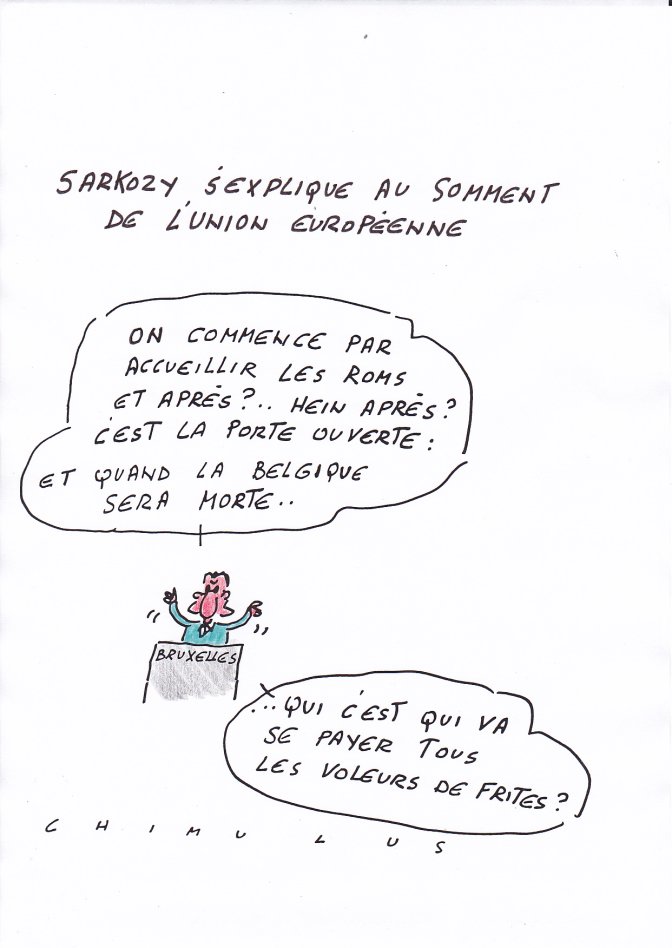 SARKOZY S'EXPLIQUE AU SOMMENT
DE L'UNION EUROPÉENNE
ON COMMENCE PAR
ACCUEILLIR LES ROMS
ET APRÈS?.. HEIN APRÈS?
C'EST LA PORTE OUVERTE :
ET QUAND LA BELGIQUE
SERA MORTE..
BRUXELLES
...QUI C'EST QUI VA
SE PAYER TOUS
LES VOLEURS DE FRITES?
CHIMULUS